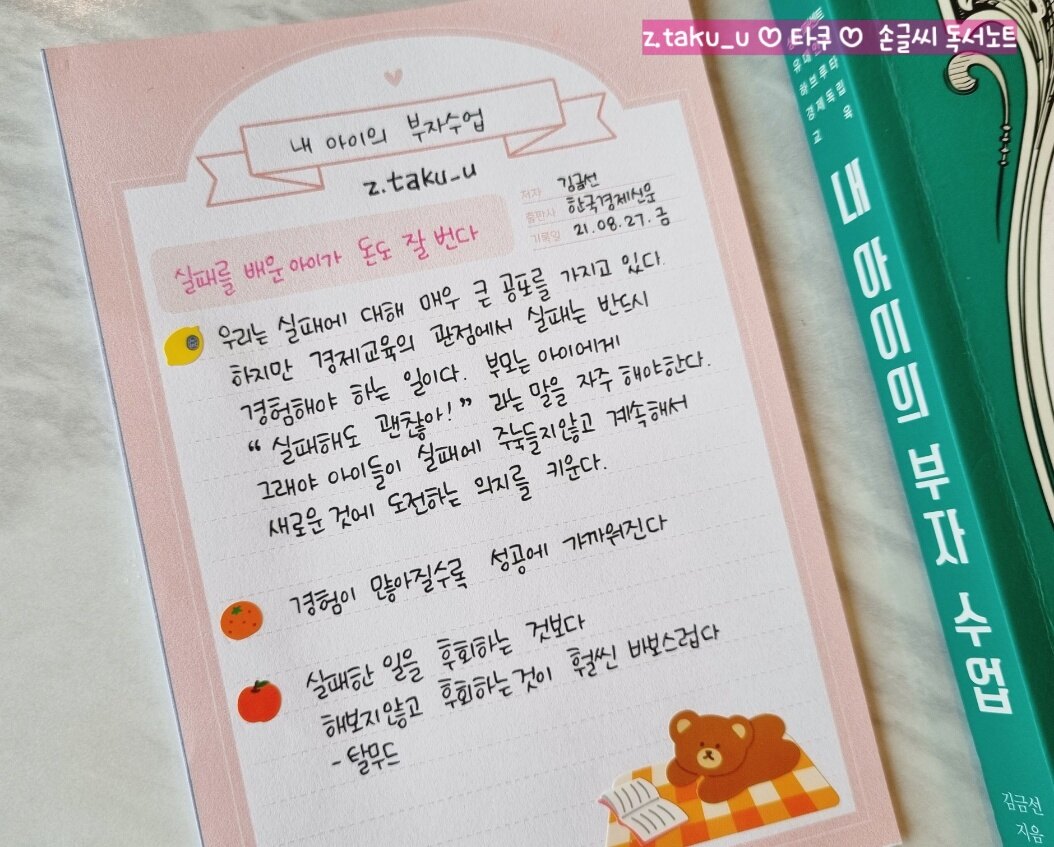 z.taku_u ♡ 타쿠 ♡ 손글씨 독서노트
내 아이의 부자수업
z.taku_u
저자 김금선
출판사 한국경제신문
기록일 21.08.27.금
실패를 배운 아이가 돈도 잘 번다
우리는 실패에 대해 매우 큰 공포를 가지고 있다.
하지만 경제교육의 관점에서 실패는 반드시
경험해야 하는 일이다. 부모는 아이에게
“실패해도 괜찮아!” 라는 말을 자주 해야한다.
그래야 아이들이 실패에 주눅들지않고 계속해서
새로운 것에 도전하는 의지를 키운다.
경험이 많아질수록 성공에 가까워진다
실패한 일을 후회하는 것보다
해보지않고 후회하는것이 훨씬 바보스럽다
-탈무드
유대인
하브루타
경제독립
교육
내 아이의 부자 수업
김금선
지음